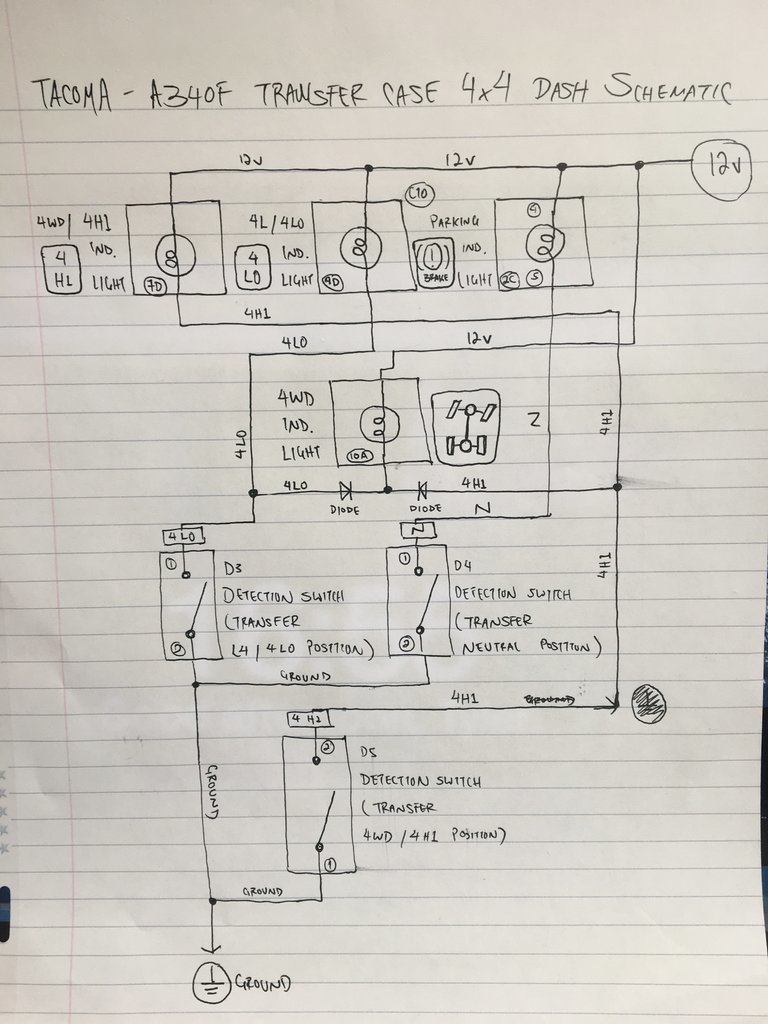 TACOMA - A340F TRANSFER CASE 4x4 DASH SCHEMATIC
12V
12V
12V
4WD/4HI
IND.
LIGHT
4
HI
7D
4L/4LO
IND.
LIGHT
4
LO
9D
C10
PARKING
IND.
LIGHT
(1)
BRAKE
4
2C
5
4HI
4LO
12V
4LO
4WD
IND.
LIGHT
10A
N
4HI
4LO
DIODE
DIODE
4HI
N
4LO
N
4HI
1
D3
DETECTION SWITCH
(TRANSFER
L4/4LO POSITION)
2
1
D4
DETECTION SWITCH
(TRANSFER
NEUTRAL POSITION)
2
GROUND
4HI
GROUND
4 HI
GROUND
2
D5
DETECTION SWITCH
(TRANSFER
4WD/4HI POSITION)
1
GROUND
GROUND